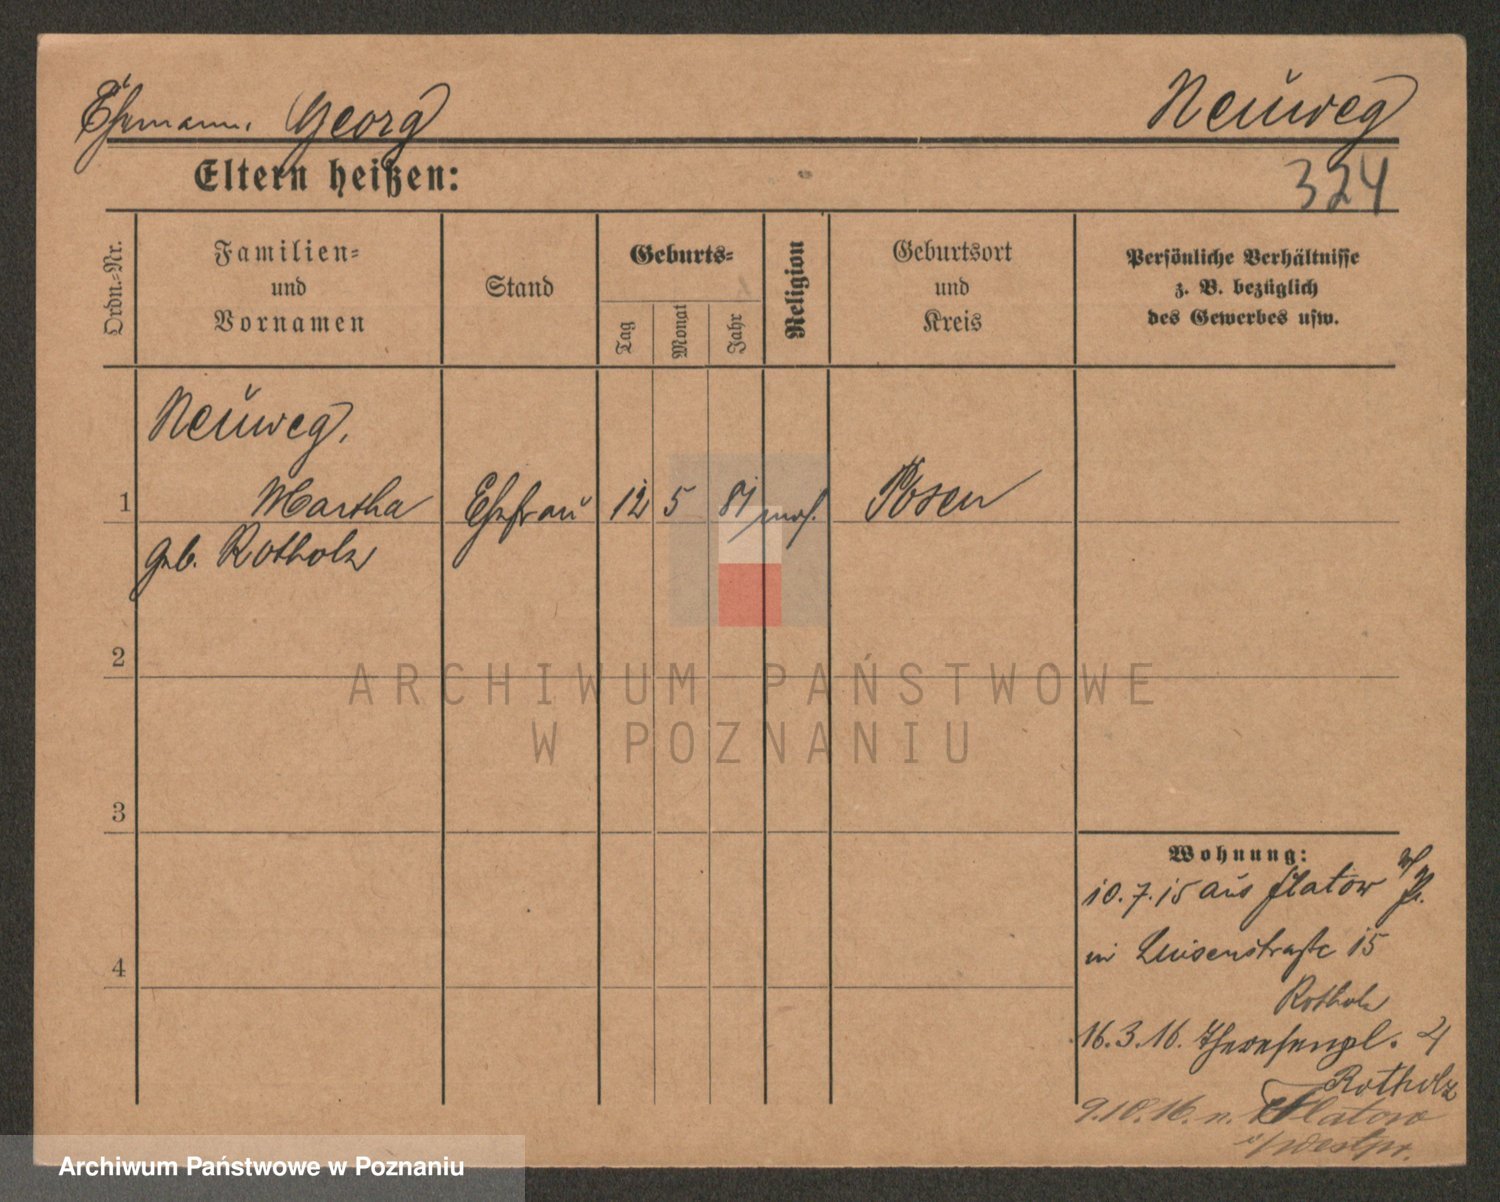 Ehemann, Georg Neuweg
Eltern heißen: 324
Ordn.-Nr.
Familien-
und
Vornamen
Stand
Geburts-
Tag
Monat
Jahr
Religion
Geburtsort
und
Kreis
Persönliche Verhältnisse
z. B. bezüglich
des Gewerbes usw.
Neuweg,
1 Martha Ehefrau 12 5 81 mos. Posen
geb. Rotholz
2
ARCHIWUM PAŃSTWOWE
W POZNANIU
3
Wohnung:
10.7.15 aus Flatow
Luisenstraße 15
Rotholz
4
16.3.16. Theresenpl. 4
Rotholz
9.10.16. n. Flatow
i/Westpr.
Archiwum Państwowe w Poznaniu